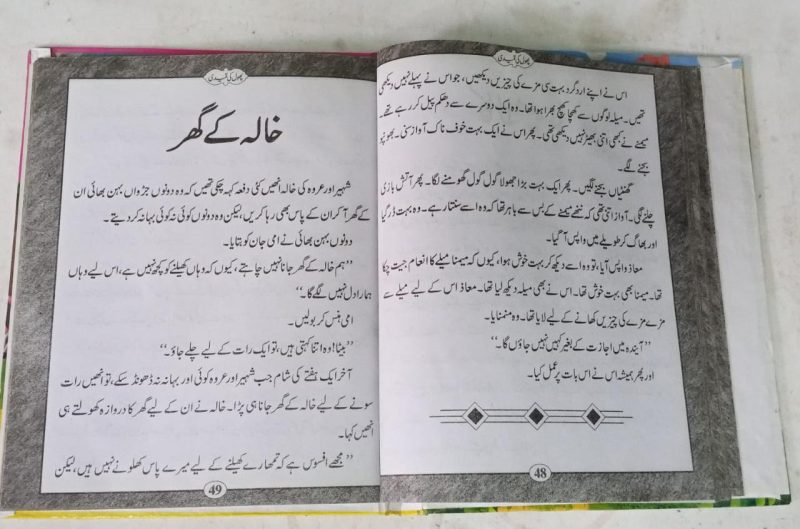 پھول کی قیدی
اس نے اپنے اردگرد بہت سی مزے کی چیزیں دیکھیں، جو اس نے پہلے نہیں دیکھی
تھیں۔ میلہ لوگوں سے کھچا کھچ بھرا ہوا تھا۔ وہ ایک دوسرے سے دھکم پیل کر رہے تھے۔
میمنے نے کبھی اتنی بھیڑ نہیں دیکھی تھی۔ پھر اس نے ایک بہت خوف ناک آواز سنی۔ بھونپو
بجنے لگے۔
گھنٹیاں بجنے لگیں۔ پھر ایک بہت بڑا جھولا گول گول گھومنے لگا۔ پھر آتش بازی
چلنے لگی۔ آواز اتنی تھی کہ ننھے میمنے کے بس سے باہر تھا کہ وہ اسے سنتا رہے۔ وہ بہت ڈر گیا
اور بھاگ کر طویلے میں واپس آ گیا۔
معاذ واپس آیا، تو وہ اسے دیکھ کر بہت خوش ہوا، کیوں کہ میمنا میلے کا انعام جیت چکا
تھا۔ میمنا بھی بہت خوش تھا۔ اس نے بھی میلہ دیکھ لیا تھا۔ معاذ اس کے لیے میلے سے
مزے مزے کی چیزیں کھانے کے لیے لایا تھا۔ وہ منمنایا۔
”آیندہ میں اجازت کے بغیر کہیں نہیں جاؤں گا۔“
اور پھر ہمیشہ اس نے اس بات پر عمل کیا۔
48
پھول کی قیدی
خالہ کے گھر
شہیر اور عروہ کی خالہ انھیں کئی دفعہ کہہ چکی تھیں کہ وہ دونوں جڑواں بہن بھائی ان
کے گھر آ کر ان کے پاس بھی رہا کریں، لیکن وہ دونوں کوئی نہ کوئی بہانہ کر دیتے۔
دونوں بہن بھائی نے امی جان کو بتایا۔
”ہم خالہ کے گھر جانا نہیں چاہتے، کیوں کہ وہاں کھیلنے کو کچھ نہیں ہے، اس لیے وہاں
ہمارا دل نہیں لگے گا۔“
امی ہنس کر بولیں۔
”بیٹا! وہ اتنا کہتی ہیں، تو ایک رات کے لیے چلے جاؤ۔“
آخر ایک ہفتے کی شام جب شہیر اور عروہ کوئی اور بہانہ نہ ڈھونڈ سکے، تو انھیں رات
سونے کے لیے خالہ کے گھر جانا ہی پڑا۔ خالہ نے ان کے لیے گھر کا دروازہ کھولتے ہی
انھیں کہا۔
”مجھے افسوس ہے کہ تمھارے کھیلنے کے لیے میرے پاس کھلونے نہیں ہیں، لیکن
49